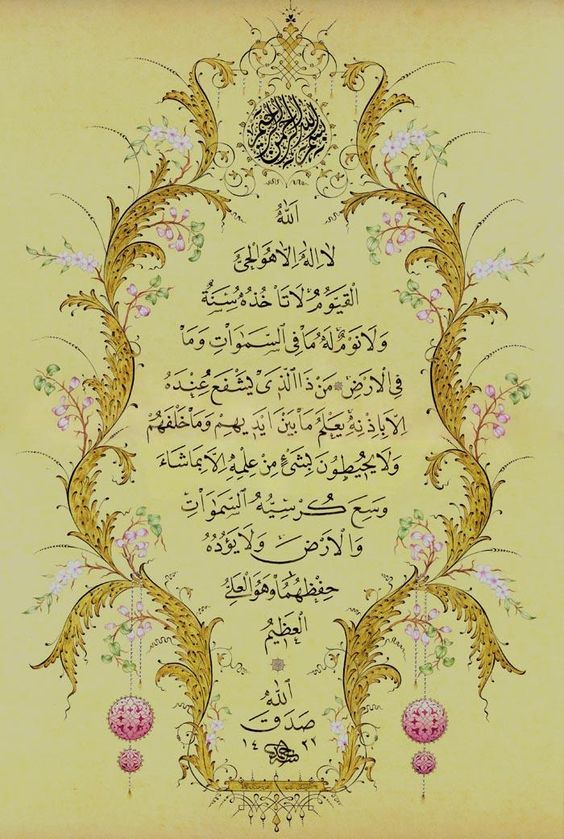 بسم الله الرحمن الرحيم
اَللّٰهُ
لَا اِلٰهَ اِلَّا هُوَ الْحَىُّ
الْقَيُّومُ لَا تَاْخُذُهُ سِنَةٌ
وَلَا نَوْمٌ لَهُ مَا فِى السَّمٰوَاتِ وَمَا
فِى الْاَرْضِ مَنْ ذَا الَّذٖى يَشْفَعُ عِنْدَهُ
اِلَّا بِاِذْنِهٖ يَعْلَمُ مَا بَيْنَ اَيْدٖيهِمْ وَمَا خَلْفَهُمْ
وَلَا يُحٖيطُونَ بِشَىْءٍ مِنْ عِلْمِهٖ اِلَّا بِمَا شَاءَ
وَسِعَ كُرْسِيُّهُ السَّمٰوَاتِ
وَالْاَرْضَ وَلَا يَؤُدُهُ
حِفْظُهُمَا وَهُوَ الْعَلِىُّ
الْعَظٖيمُ
صَدَقَ اللّٰهُ
١٤٢١